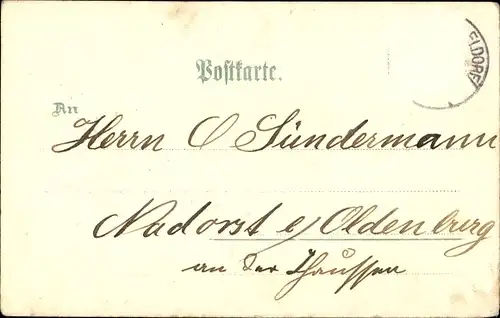 ELDORF
Postkarte.
An
Herrn O Sündermann
Nadorst e/ Oldenburg
an der Chaussee